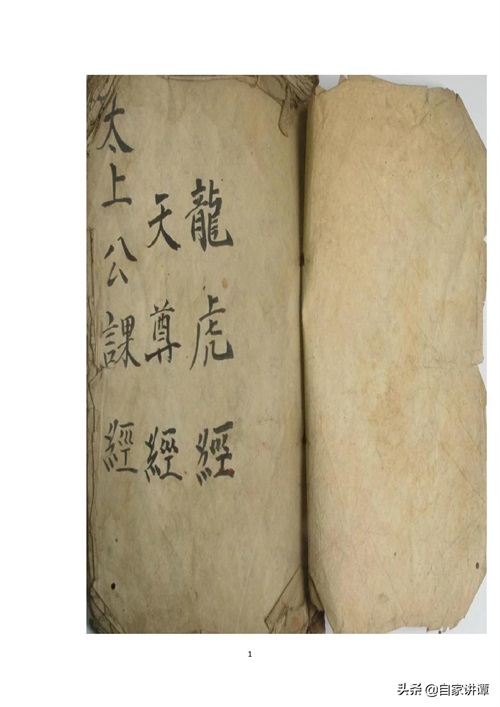 龍虎經
天尊經
太上公課經
1
头条 @自家讲谭